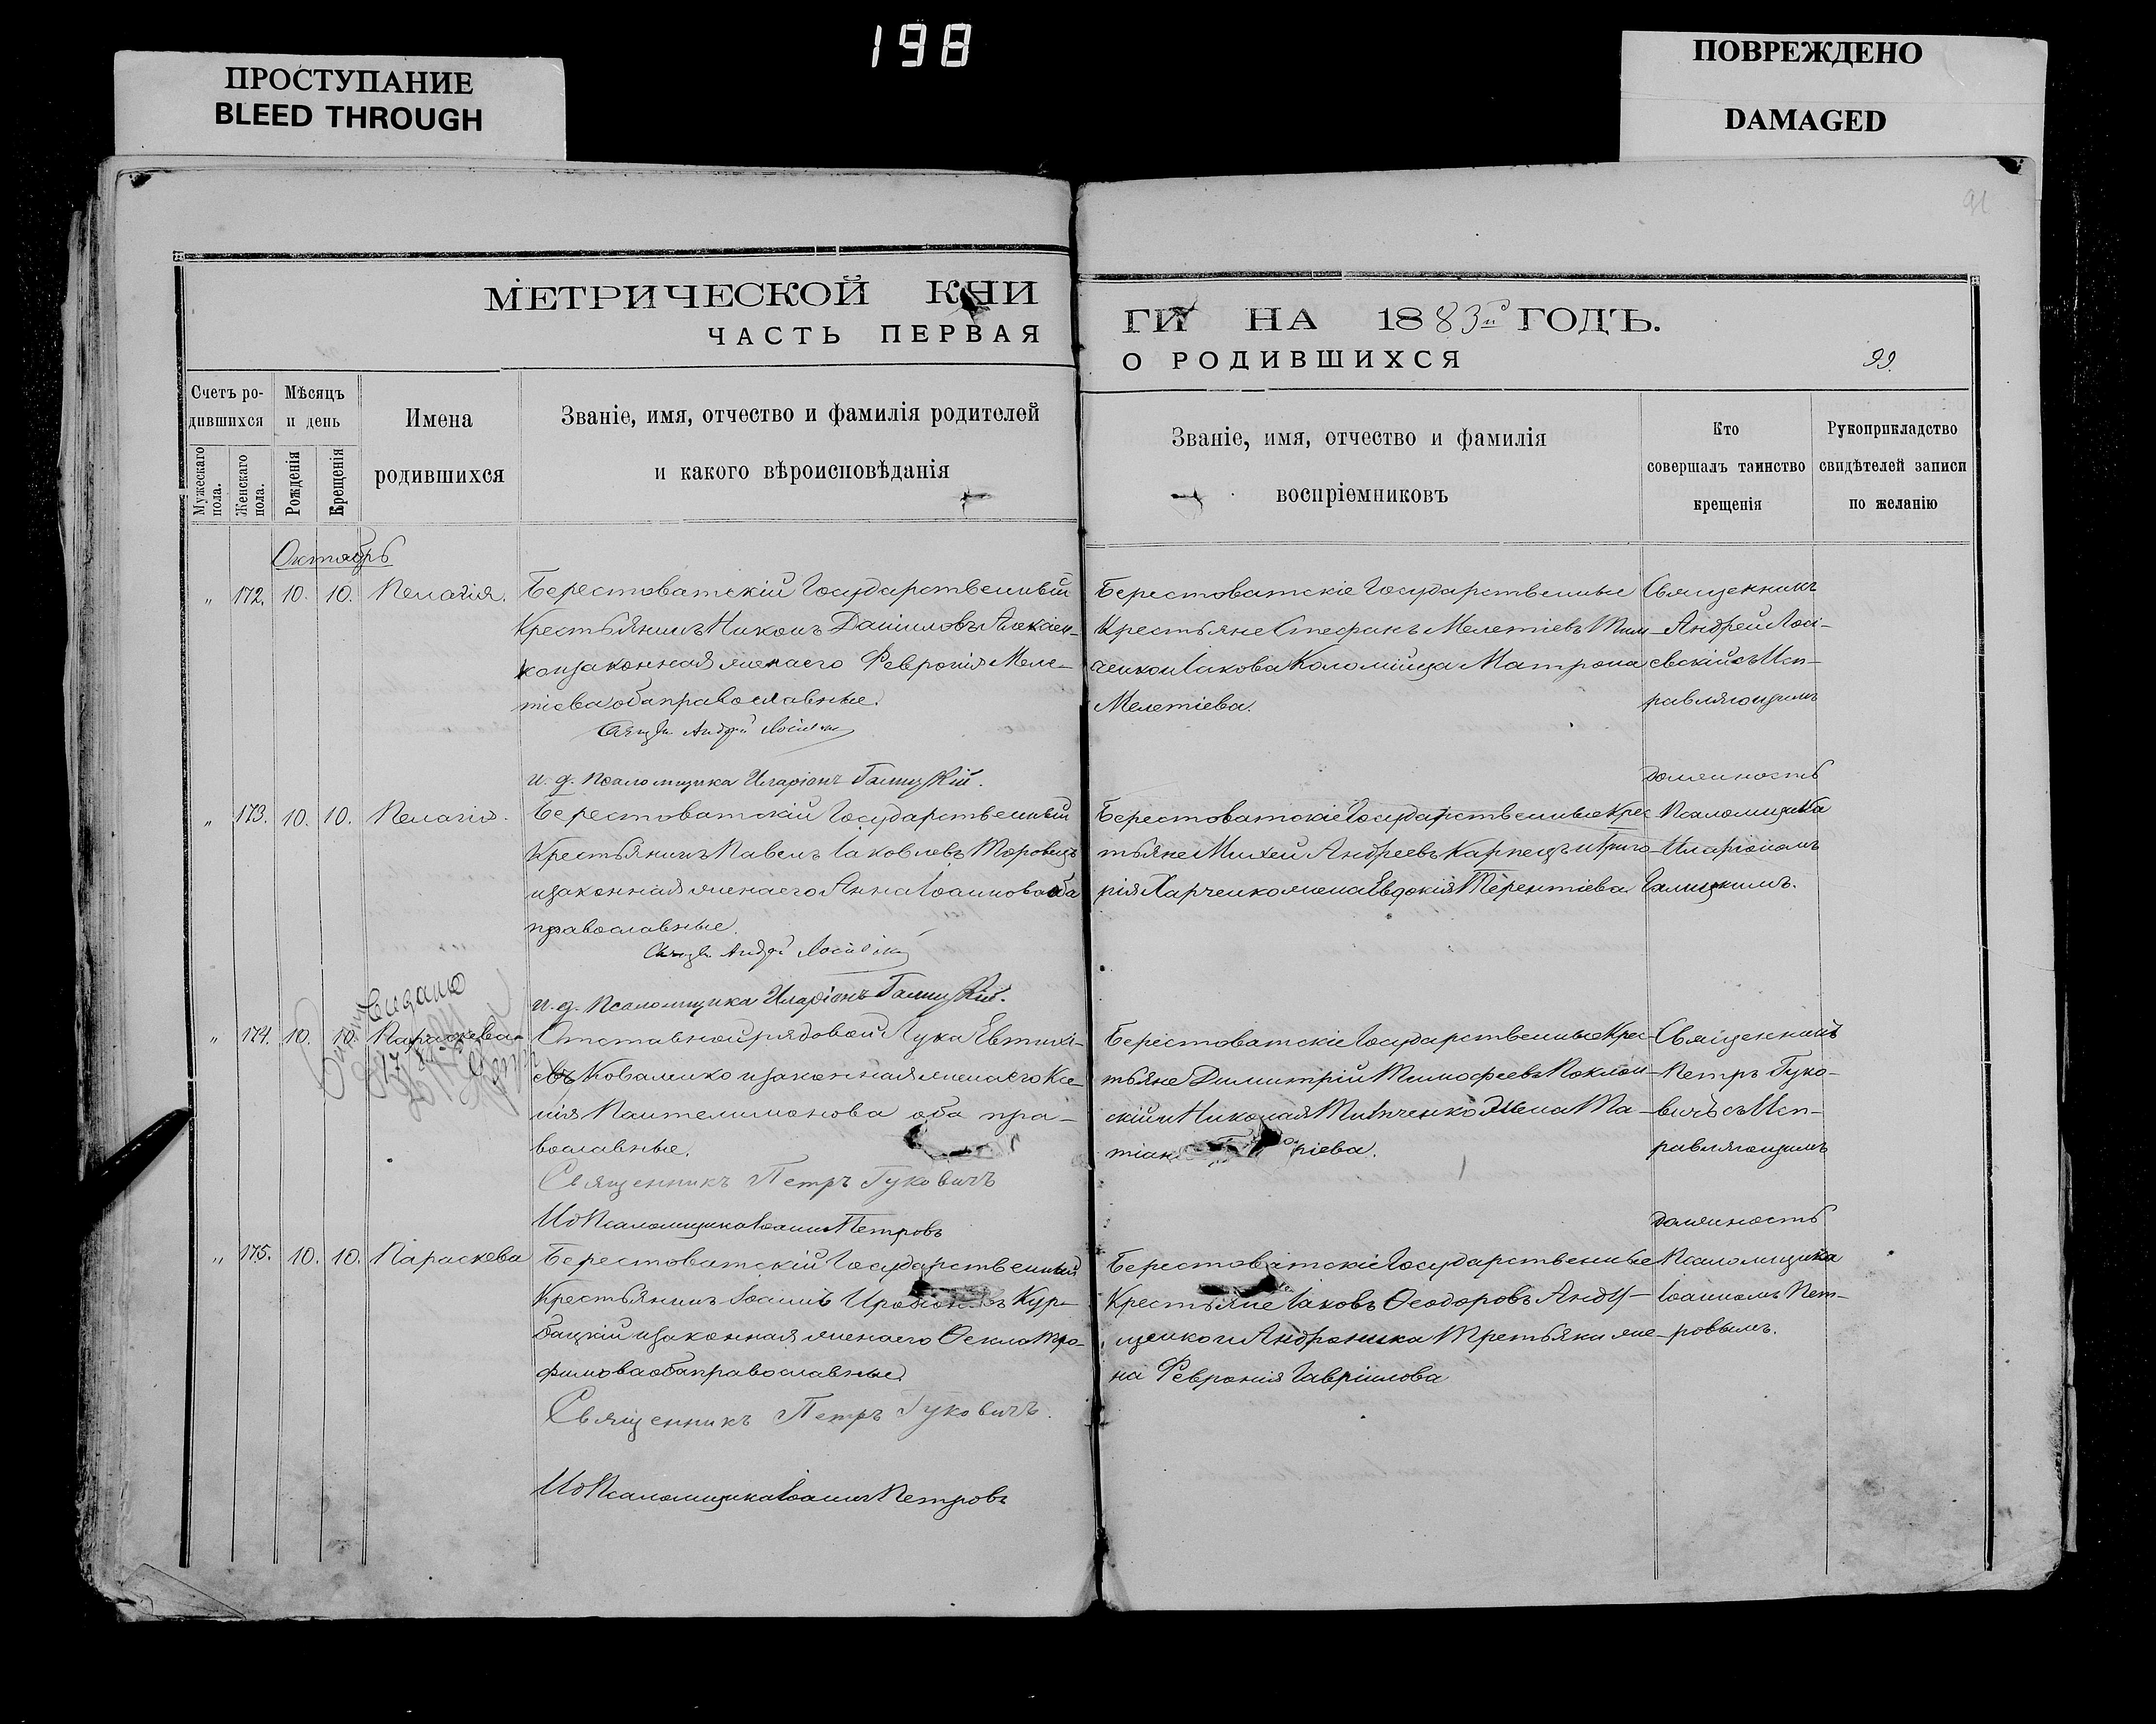 198
ПРОСТУПАНИЕ
BLEED THROUGH
ПОВРЕЖДЕНО
DAMAGED
91
МЕТРИЧЕСКОЙ КНИ
ЧАСТЬ ПЕРВАЯ
ГИ НА 1883й ГОДЪ.
О РОДИВШИХСЯ
99.
Счетъ ро-
дившихся
Мужескаго пола.
Женскаго пола.
Мѣсяцъ
и день
Рожденія
Крещенія
Имена
родившихся
Званіе, имя, отчество и фамилія родителей
и какого вѣроисповѣданія
Званіе, имя, отчество и фамилія
воспріемниковъ
Кто
совершалъ таинство
крещенія
Рукоприкладство
свидѣтелей записи
по желанію
Октябрь
„ 172. 10. 10. Пелагія.
Берестоватскій Государственный
Крестьянинъ Никонъ Даниловъ
законная жена его Феврония Меле-
тіева оба православные.
Свящ. Андрей
и. д. псаломщика Иларіонъ Галицкій.
Берестоватскіе Государственные
Крестьяне Стефанъ Мелетіевъ
Іакова Коломійца Матрона
Мелетіева.
Священникъ
Андрей Лосі-
евскій съ Исп-
равляющимъ
должность
Псаломщика
Иларіономъ
Галицкимъ.
„ 173. 10. 10. Пелагія.
Берестоватскій Государственный
Крестьянинъ Павелъ Іаковлевъ
и законная жена его Анна Іоаннова оба
православные.
Свящ. Андрей
и. д. Псаломщика Иларіонъ Галицкій.
Берестоватскіе Государственные Крес
тьяне Михей Андреевъ Карпецъ и Григо
рія Харченко жена Евдокія Терентіева
„ 174. 10. 10. Параскева
Отставной рядовой Лука Евтихі-
евъ Коваленко и законная жена его Ксе-
нія Пантелимонова оба пра-
вославные.
Священникъ Петръ Гуковичъ
Ид Псаломщика Іоаннъ Петровъ
Берестоватскіе Государственные Крес-
тьяне Димитрій Тимофеевъ Поклон-
скій и Николая жена Та-
тіан ріева.
Священникъ
Петръ Гуко-
вичъ съ Исп-
равляющимъ
должность
Псаломщика
Іоанномъ Пет-
ровымъ.
„ 175. 10. 10. Параскева
Берестоватскій Государственный
Крестьянинъ Іоаннъ Кур-
бацкій и законная жена его Ѳекла Тро-
фимова оба православные.
Священникъ Петръ Гуковичъ.
Ид Псаломщика Іоаннъ Петровъ
Берестоватскіе Государственные
Крестьяне Іаковъ Ѳеодоровъ Анду-
щенко и Андроника Третьяки же-
на Феврония Гавріилова